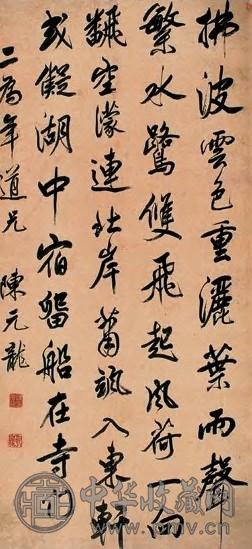 拂波雲色重灑葉雨聲
繁水鷺雙飛起風荷一向
翻空濛連北岸蕭颯入東軒
或擬湖中宿留船在寺門
年道兄 陳元龍
中华收藏网